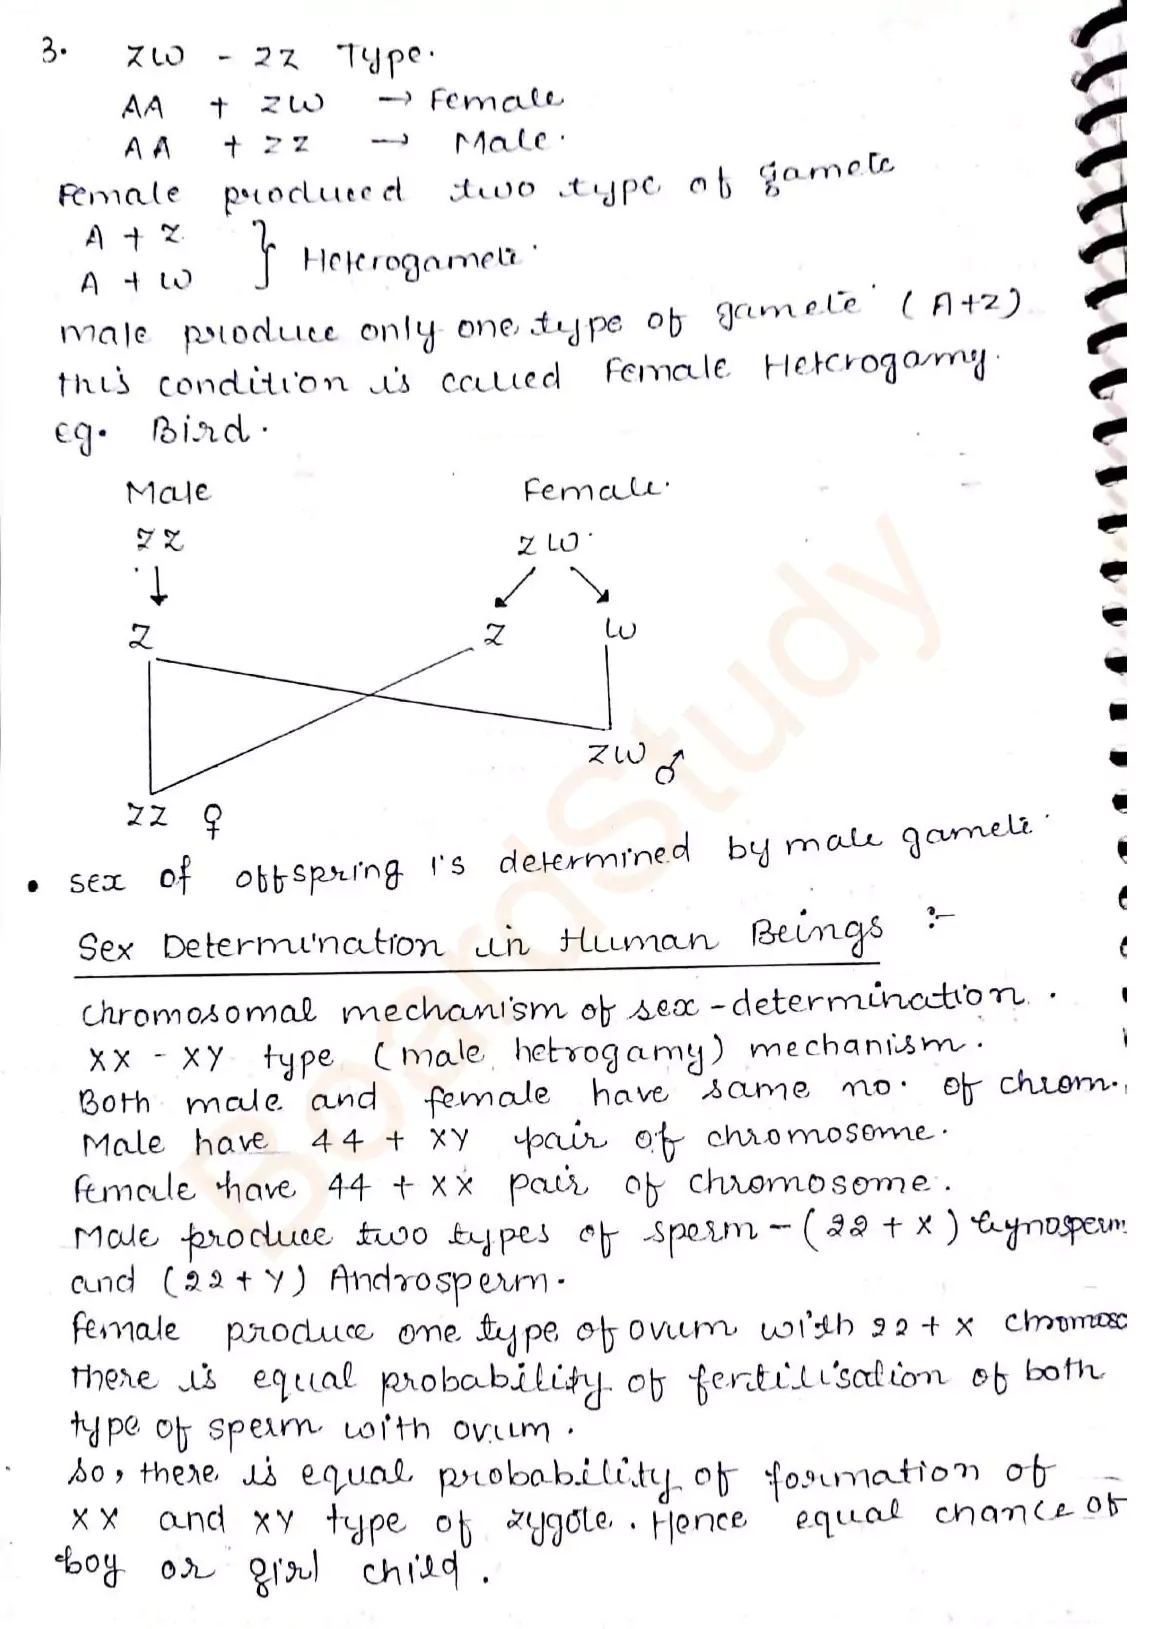 3. ZW - ZZ Type.
AA + ZW → Female
AA + ZZ → Male.
Female produced two type of gamete
A + Z
A + W } Heterogamete.
male produce only one type of gamete (A+Z)
this condition is called Female Heterogamy.
eg. Bird.
Male Female.
ZZ ZW.
Z Z W
ZW ♂
ZZ ♀
• sex of offspring is determined by male gamete.
Sex Determination in Human Beings :-
chromosomal mechanism of sex-determination.
XX - XY type (male hetrogamy) mechanism.
Both male and female have same no. of chrom.
Male have 44 + XY pair of chromosome.
female have 44 + XX pair of chromosome.
Male produce two types of sperm - (22 + X) Gynosperm
and (22 + Y) Androsperm.
female produce one type of ovum with 22 + X chromoso
there is equal probability of fertilisation of both
type of sperm with ovum.
so, there is equal probability of formation of
XX and XY type of zygote. Hence equal chance of
boy or girl child.
BoardStudy